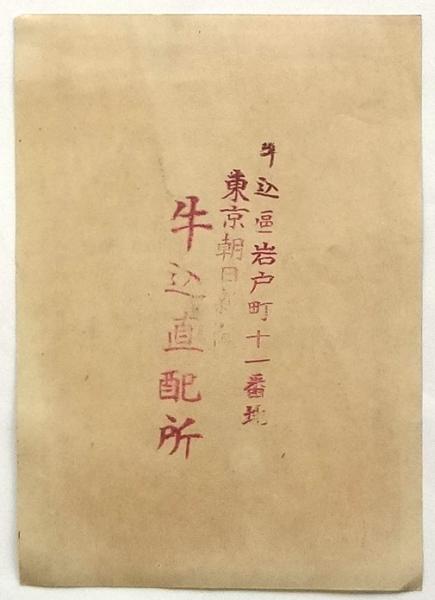 牛込區岩戸町十一番地
東京朝日新聞
牛込直配所